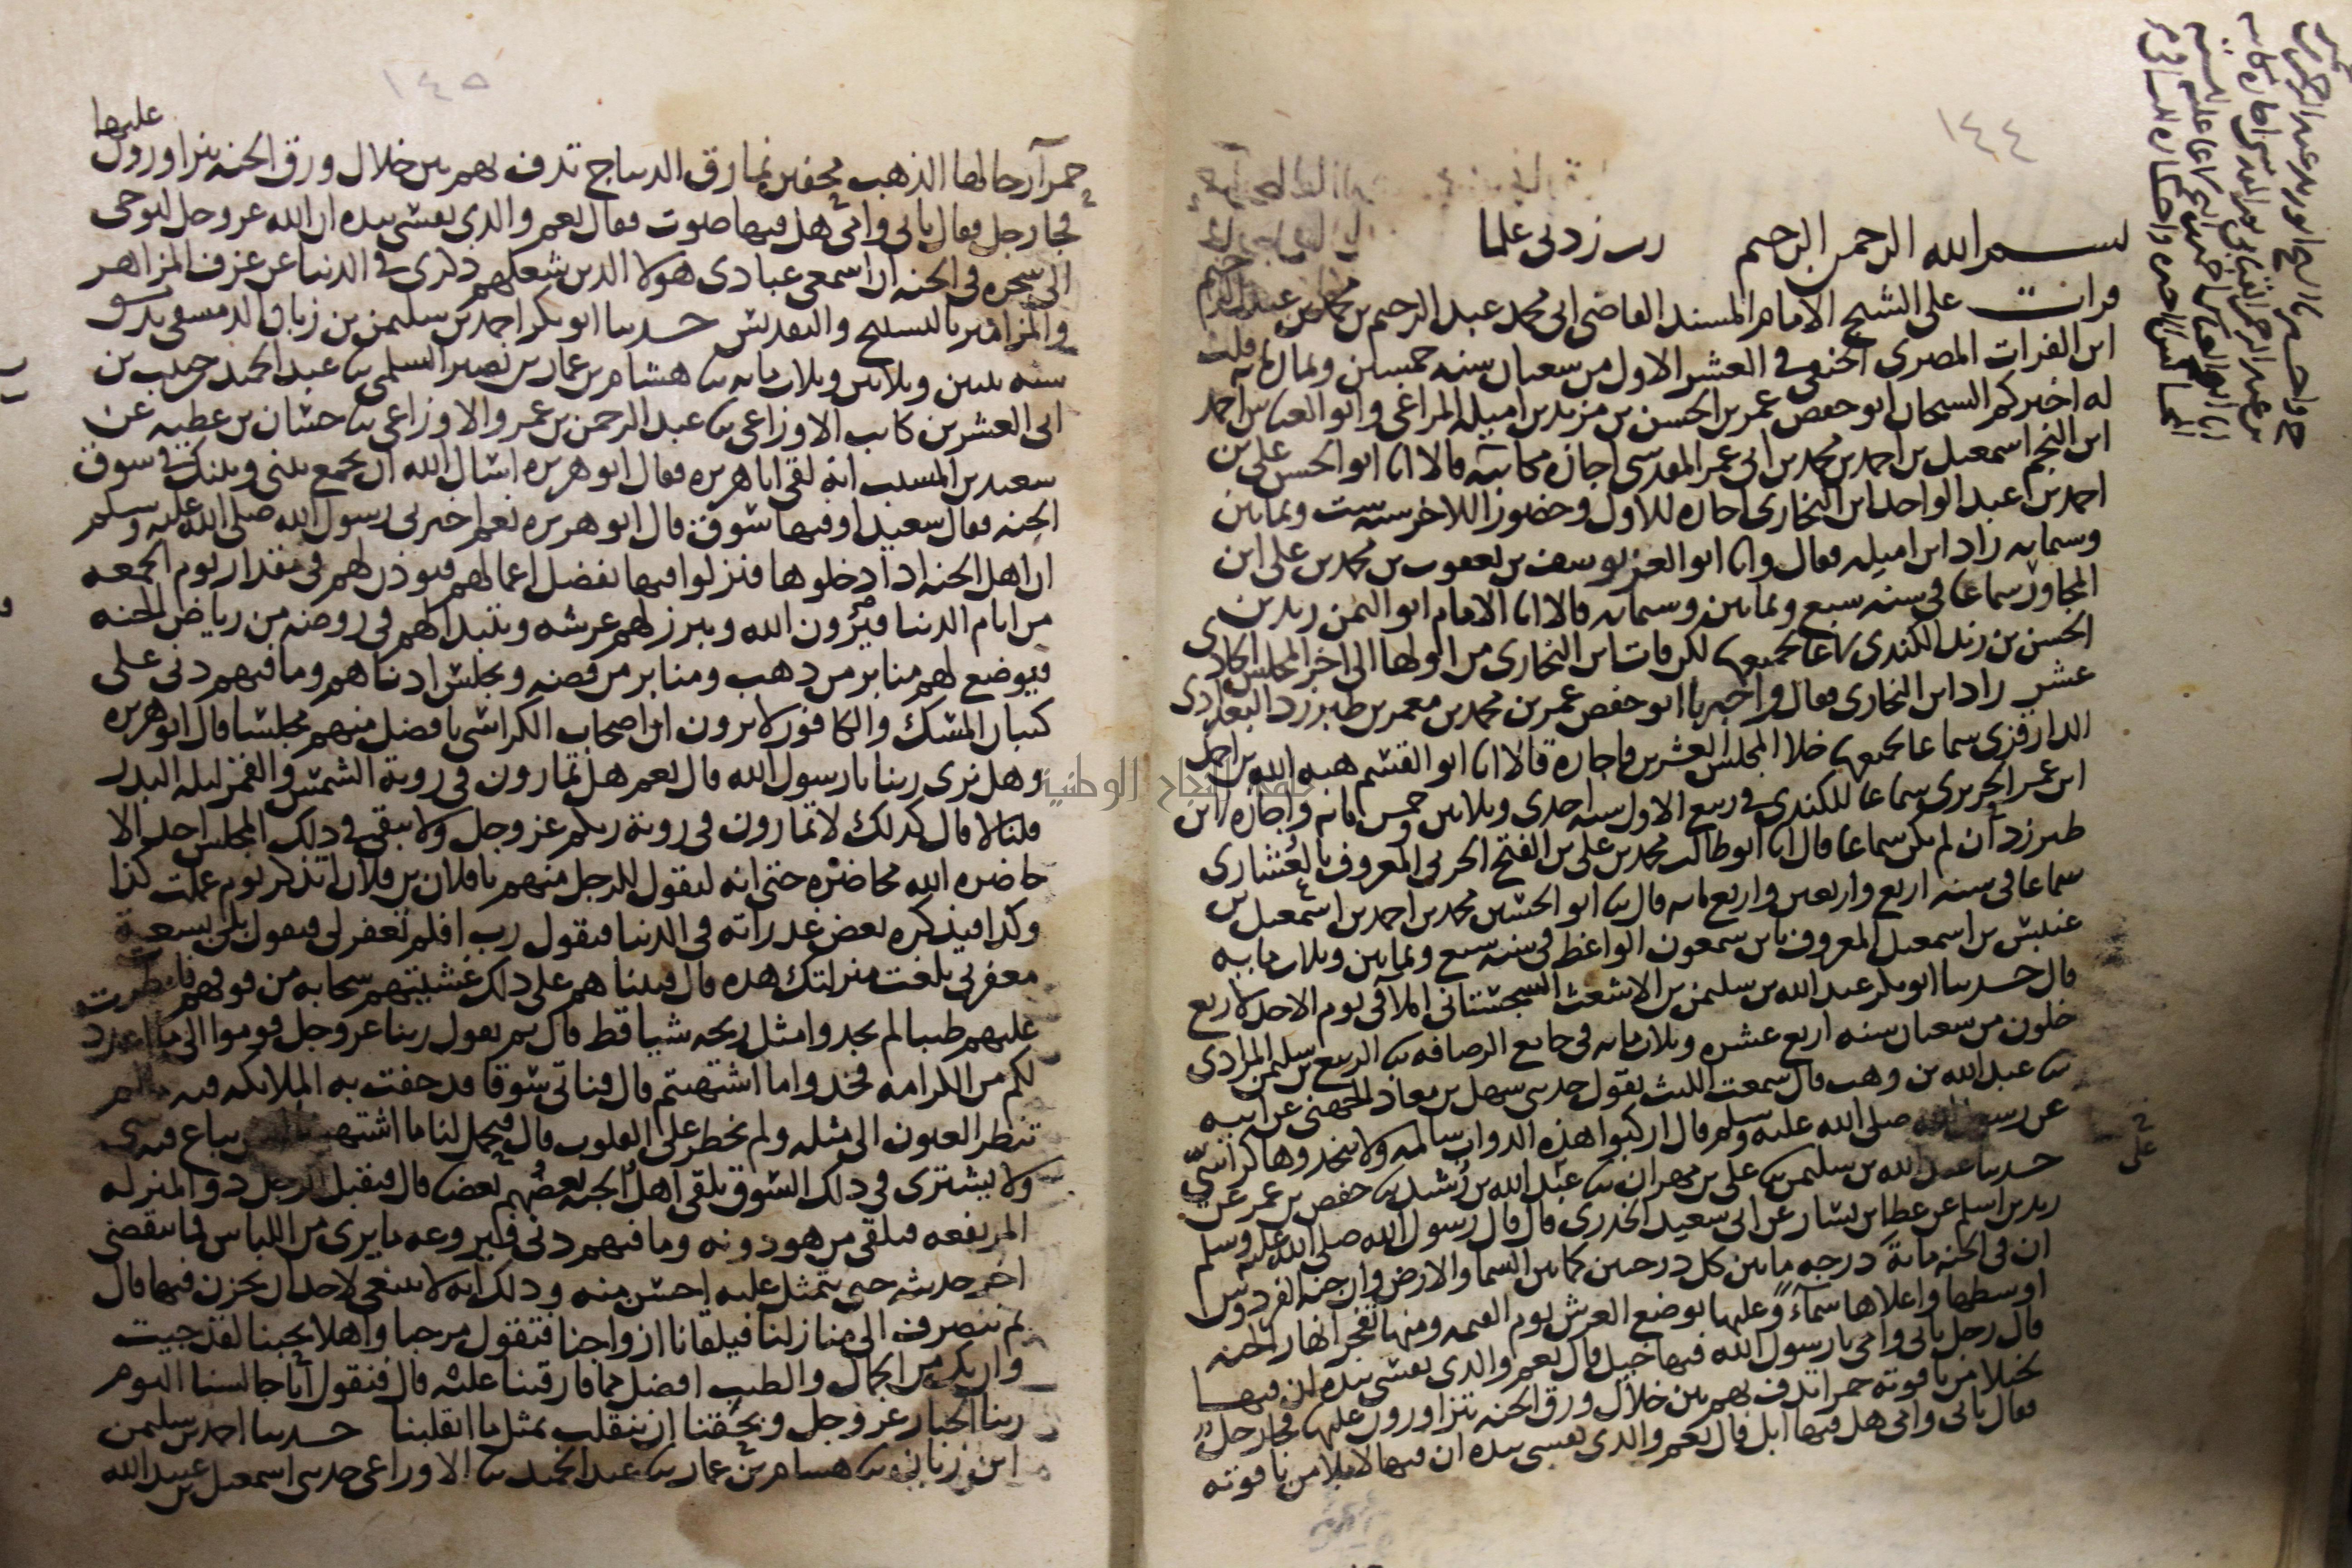 ١٤٤
بسم الله الرحمن الرحيم رب زدني علما
قرات على الشيخ الامام المسند القاضي ابي محمد عبد الرحيم بن محمد بن عبد الرحيم
ابن الفرات المصري الحنفي في العشر الاول من شعبان سنه خمسين وثمان مايه قلت
له اخبركم الشيخان ابو حفص عمر بن الحسن بن مزيد بن اميله المراغي وابو العباس احمد
ابن النجم اسمعيل بن احمد بن محمد بن ابي عمر المقدسي اجازه مكاتبة قالا انا ابو الحسن علي بن
احمد بن عبد الواحد ابن البخاري اجازه للاول وحضورا للاخر سنه ست وثمانين
وستمايه زاد ابن اميله فقال وانا ابو العز يوسف بن يعقوب بن محمد بن علي ابن
المجاور سماعا في سنه سبع وثمانين وستمايه قالا انا الامام ابو اليمن زيد بن
الحسن بن زيد الكندي سماعا لجميعها لكن فات ابن البخاري من اولها الى اخر المجلس الحادي
عشر زاد ابن البخاري فقال واخبرنا ابو حفص عمر بن محمد بن معمر بن طبرزد البغدادي
الدارقزي سماعا لجميعها خلا المجلس العشرين فاجازة قالا انا ابو القسم هبه الله بن احمد
ابن عمر الحريري سماعا للكندي في ربيع الاول سنه احدى وثلاثين وخمس مايه واجازه لابن
طبرزد ان لم يكن سماعا قال انا ابو طالب محمد بن علي بن الفتح الحربي المعروف بالعشاري
سماعا في سنه اربع واربعين واربع مايه قال ثنا ابو الحسين محمد بن احمد بن اسمعيل بن
عنبس بن اسمعيل المعروف بابن سمعون الواعظ في سنه سبع وثمانين وثلاث مايه
قال حدثنا ابو بكر عبد الله بن سليمن بن الاشعث السجستاني املآ في يوم الاحد لاربع
خلون من شعبان سنه اربع عشره وثلاث مايه في جامع الرصافه ثنا الربيع بن سليمن المرادي
ثنا عبد الله بن وهب قال سمعت الليث يقول حدثني سهل بن معاذ الجهني عن ابيه
عن رسول الله صلى الله عليه وسلم قال اركبوا هذه الدواب سالمه ولا تتخذوها كراسي
حدثنا عبد الله بن سليمن ثنا علي بن مهران ثنا عبد الله بن رشيد ثنا حفص بن عمر عن
زيد بن اسلم عن عطا بن يسار عن ابي سعيد الخدري قال قال رسول الله صلى الله عليه وسلم
ان في الجنه ماية درجه ما بين كل درجتين كما بين السما والارض وان جنه الفردوس
اوسطها واعلاها سمآءً وعليها يوضع العرش يوم القيمه ومنها تفجر انهار الجنه
قال رجل بابي وامي يا رسول الله فيها خيل قال نعم والذي نفسي بيده ان فيها
لخيلا من ياقوته حمرا تدف بهم بين خلال ورق الجنه يتزاورون عليها فجا رجل
فقال بابي وامي هل فيها ابل قال نعم والذي نفسي بيده ان فيها لابلا من ياقوته
١٤٥
حمرآ رحالها الذهب محفين نمارق الديباج تدف بهم بين خلال ورق الجنه يتزاورون عليها
فجا رجل فقال بابي وامي هل فيها صوت فقال نعم والذي نفسي بيده ان الله عز وجل ليوحي
الى شجره في الجنه ان اسمعي عبادي هولا الذين شغلهم ذكري في الدنيا عن عزف المزاهر
والمزامير بالتسبيح والتقديس حدثنا ابو بكر احمد بن سليمن بن زبان الدمشقي بدمشق
سنه ثنتين وثلاثين وثلاث مايه ثنا هشام بن عمار بن نصير السلمي ثنا عبد الحميد بن حبيب بن
ابي العشرين كاتب الاوزاعي ثنا عبد الرحمن بن عمرو الاوزاعي ثنا حسان بن عطيه عن
سعيد بن المسيب انه لقي ابا هريره فقال ابو هريره اسال الله ان يجمع بيني وبينك في سوق
الجنه فقال سعيد اوفيها سوق قال ابو هريره نعم اخبرني رسول الله صلى الله عليه وسلم
ان اهل الجنه اذا دخلوها فنزلوا فيها بفضل اعمالهم فيوذن لهم في مقدار يوم الجمعه
من ايام الدنيا فيزورون الله ويبرز لهم عرشه ويتبدا لهم في روضه من رياض الجنه
فيوضع لهم منابر من ذهب ومنابر من فضه ويجلس ادناهم وما فيهم دني على
كثبان المسك والكافور لا يرون ان اصحاب الكراسي بافضل منهم مجلسا قال ابو هريره
وهل نرى ربنا يا رسول الله قال نعم هل تمارون في روية الشمس والقمر ليله البدر
قلنا لا قال كذلك لا تمارون في روية ربكم عز وجل ولا يبقى في ذلك المجلس احد الا
حاضره الله محاضره حتى انه ليقول للرجل منهم يا فلان بن فلان اتذكر يوم عملت كذا
وكذا فيذكره بعض غدراته في الدنيا فيقول رب افلم تغفر لي فيقول بلى بسعة
مغفرتي بلغت منزلتك هذه قال فبينا هم على ذلك غشيتهم سحابه من فوقهم فامطرت
عليهم طيبا لم يجدوا مثل ريحه شيا قط قال ثم يقول ربنا عز وجل قوموا الى ما اعددت
لكم من الكرامه فخذوا ما اشتهيتم قال فناتي سوقا قد حفت به الملايكه فيه ما لم
تنظر العيون الى مثله ولم يخطر على القلوب قال فيحمل لنا ما اشتهينا ليس يباع فيه شي
ولا يشترى في ذلك السوق يلقى اهل الجنه بعضهم بعضا قال فيقبل الرجل ذو المنزله
المرتفعه فيلقى من هو دونه وما فيهم دني فيروعه ما يرى من اللباس فما ينقضي
اخر حديثه حتى يتمثل عليه احسن منه وذلك انه لا ينبغي لاحد ان يحزن فيها قال
ثم ننصرف الى منازلنا فيلقانا ازواجنا فتقول مرحبا واهلا بحبنا لقد جيت
وان بك من الجمال والطيب افضل مما فارقتنا عليه قال فنقول انا جالسنا اليوم
ربنا الجبار عز وجل ويحقنا ان ننقلب بمثل ما انقلبنا حدثنا احمد بن سليمن
ابن زبان ثنا هشام بن عمار ثنا عبد الحميد ثنا الاوزاعي حدثني اسمعيل بن عبيد الله